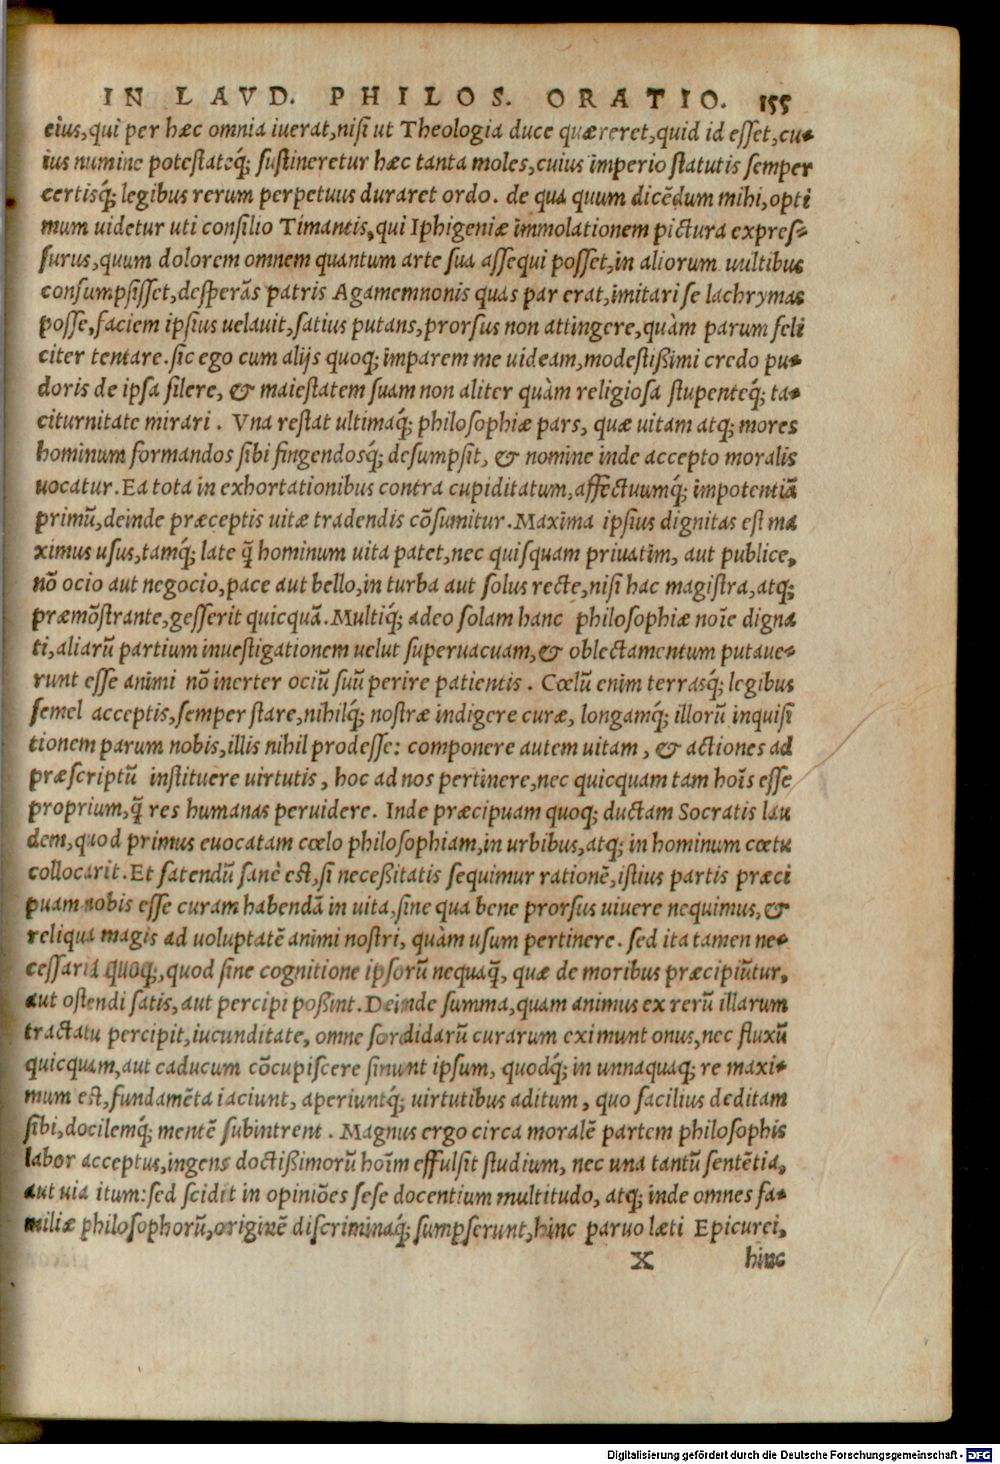 IN LAVD. PHILOS. ORATIO. 155
eius, qui per hæc omnia iuerat, nisi ut Theologia duce quæreret, quid id esset, cu-
ius numine potestateq́; sustineretur hæc tanta moles, cuius imperio statutis semper
certisq́; legibus rerum perpetuus duraret ordo. de qua quum dicẽdum mihi, opti
mum uidetur uti consilio Timantis, qui Iphigeniæ immolationem pictura expres-
surus, quum dolorem omnem quantum arte sua assequi posset, in aliorum uultibus
consumpsisset, desperãs patris Agamemnonis quas par erat, imitari se lachrymas
posse, faciem ipsius uelauit, satius putans, prorsus non attingere, quàm parum feli
citer tentare. sic ego cum alijs quoq; imparem me uideam, modestißimi credo pu-
doris de ipsa silere, & maiestatem suam non aliter quàm religiosa stupenteq́; ta-
citurnitate mirari. Vna restat ultimaq́; philosophiæ pars, quæ uitam atq; mores
hominum formandos sibi fingendosq́; desumpsit, & nomine inde accepto moralis
uocatur. Ea tota in exhortationibus contra cupiditatum, affectuumq́; impotentiã
primũ, deinde præceptis uitæ tradendis cõsumitur. Maxima ipsius dignitas est ma
ximus usus, tamq́; late q̃ hominum uita patet, nec quisquam priuatim, aut publice,
nõ ocio aut negocio, pace aut bello, in turba aut solus recte, nisi hac magistra, atq;
præmõstrante, gesserit quicquã. Multiq́; adeo solam hanc philosophiæ noĩe digna
ti, aliarũ partium inuestigationem uelut superuacuam, & oblectamentum putaue-
runt esse animi nõ inerter ociũ suũ perire patientis. Cœlũ enim terrasq́; legibus
semel acceptis, semper stare, nihilq́; nostræ indigere curæ, longamq́; illorũ inquisi
tionem parum nobis, illis nihil prodesse: componere autem uitam, & actiones ad
præscriptũ instituere uirtutis, hoc ad nos pertinere, nec quicquam tam hoĩs esse
proprium, q̃ res humanas peruidere. Inde præcipuam quoq; ductam Socratis lau
dem, quod primus euocatam cœlo philosophiam, in urbibus, atq; in hominum cœtu
collocarit. Et fatendũ sanè est, si neceßitatis sequimur rationẽ, istius partis præci
puam nobis esse curam habendã in uita, sine qua bene prorsus uiuere nequimus, &
reliqua magis ad uoluptatẽ animi nostri, quàm usum pertinere. sed ita tamen ne-
cessaria quoq;, quod sine cognitione ipsorũ nequaq̃, quæ de moribus præcipiũtur,
aut ostendi satis, aut percipi poßint. Deinde summa, quam animus ex rerũ illarum
tractatu percipit, iucunditate, omne sordidarũ curarum eximunt onus, nec fluxũ
quicquam, aut caducum cõcupiscere sinunt ipsum, quodq́; in unnaquaq; re maxi-
mum est, fundamẽta iaciunt, aperiuntq́; uirtutibus aditum, quo facilius deditam
sibi, docilemq́; mentẽ subintrent. Magnus ergo circa moralẽ partem philosophis
labor acceptus, ingens doctißimorũ hoĩm effulsit studium, nec una tantũ sentẽtia,
aut uia itum: sed scidit in opiniões sese docentium multitudo, atq; inde omnes fa-
miliæ philosophorũ, originẽ discriminaq́; sumpserunt, hinc paruo læti Epicurei,
X hinc
Digitalisierung gefördert durch die Deutsche Forschungsgemeinschaft - DFG